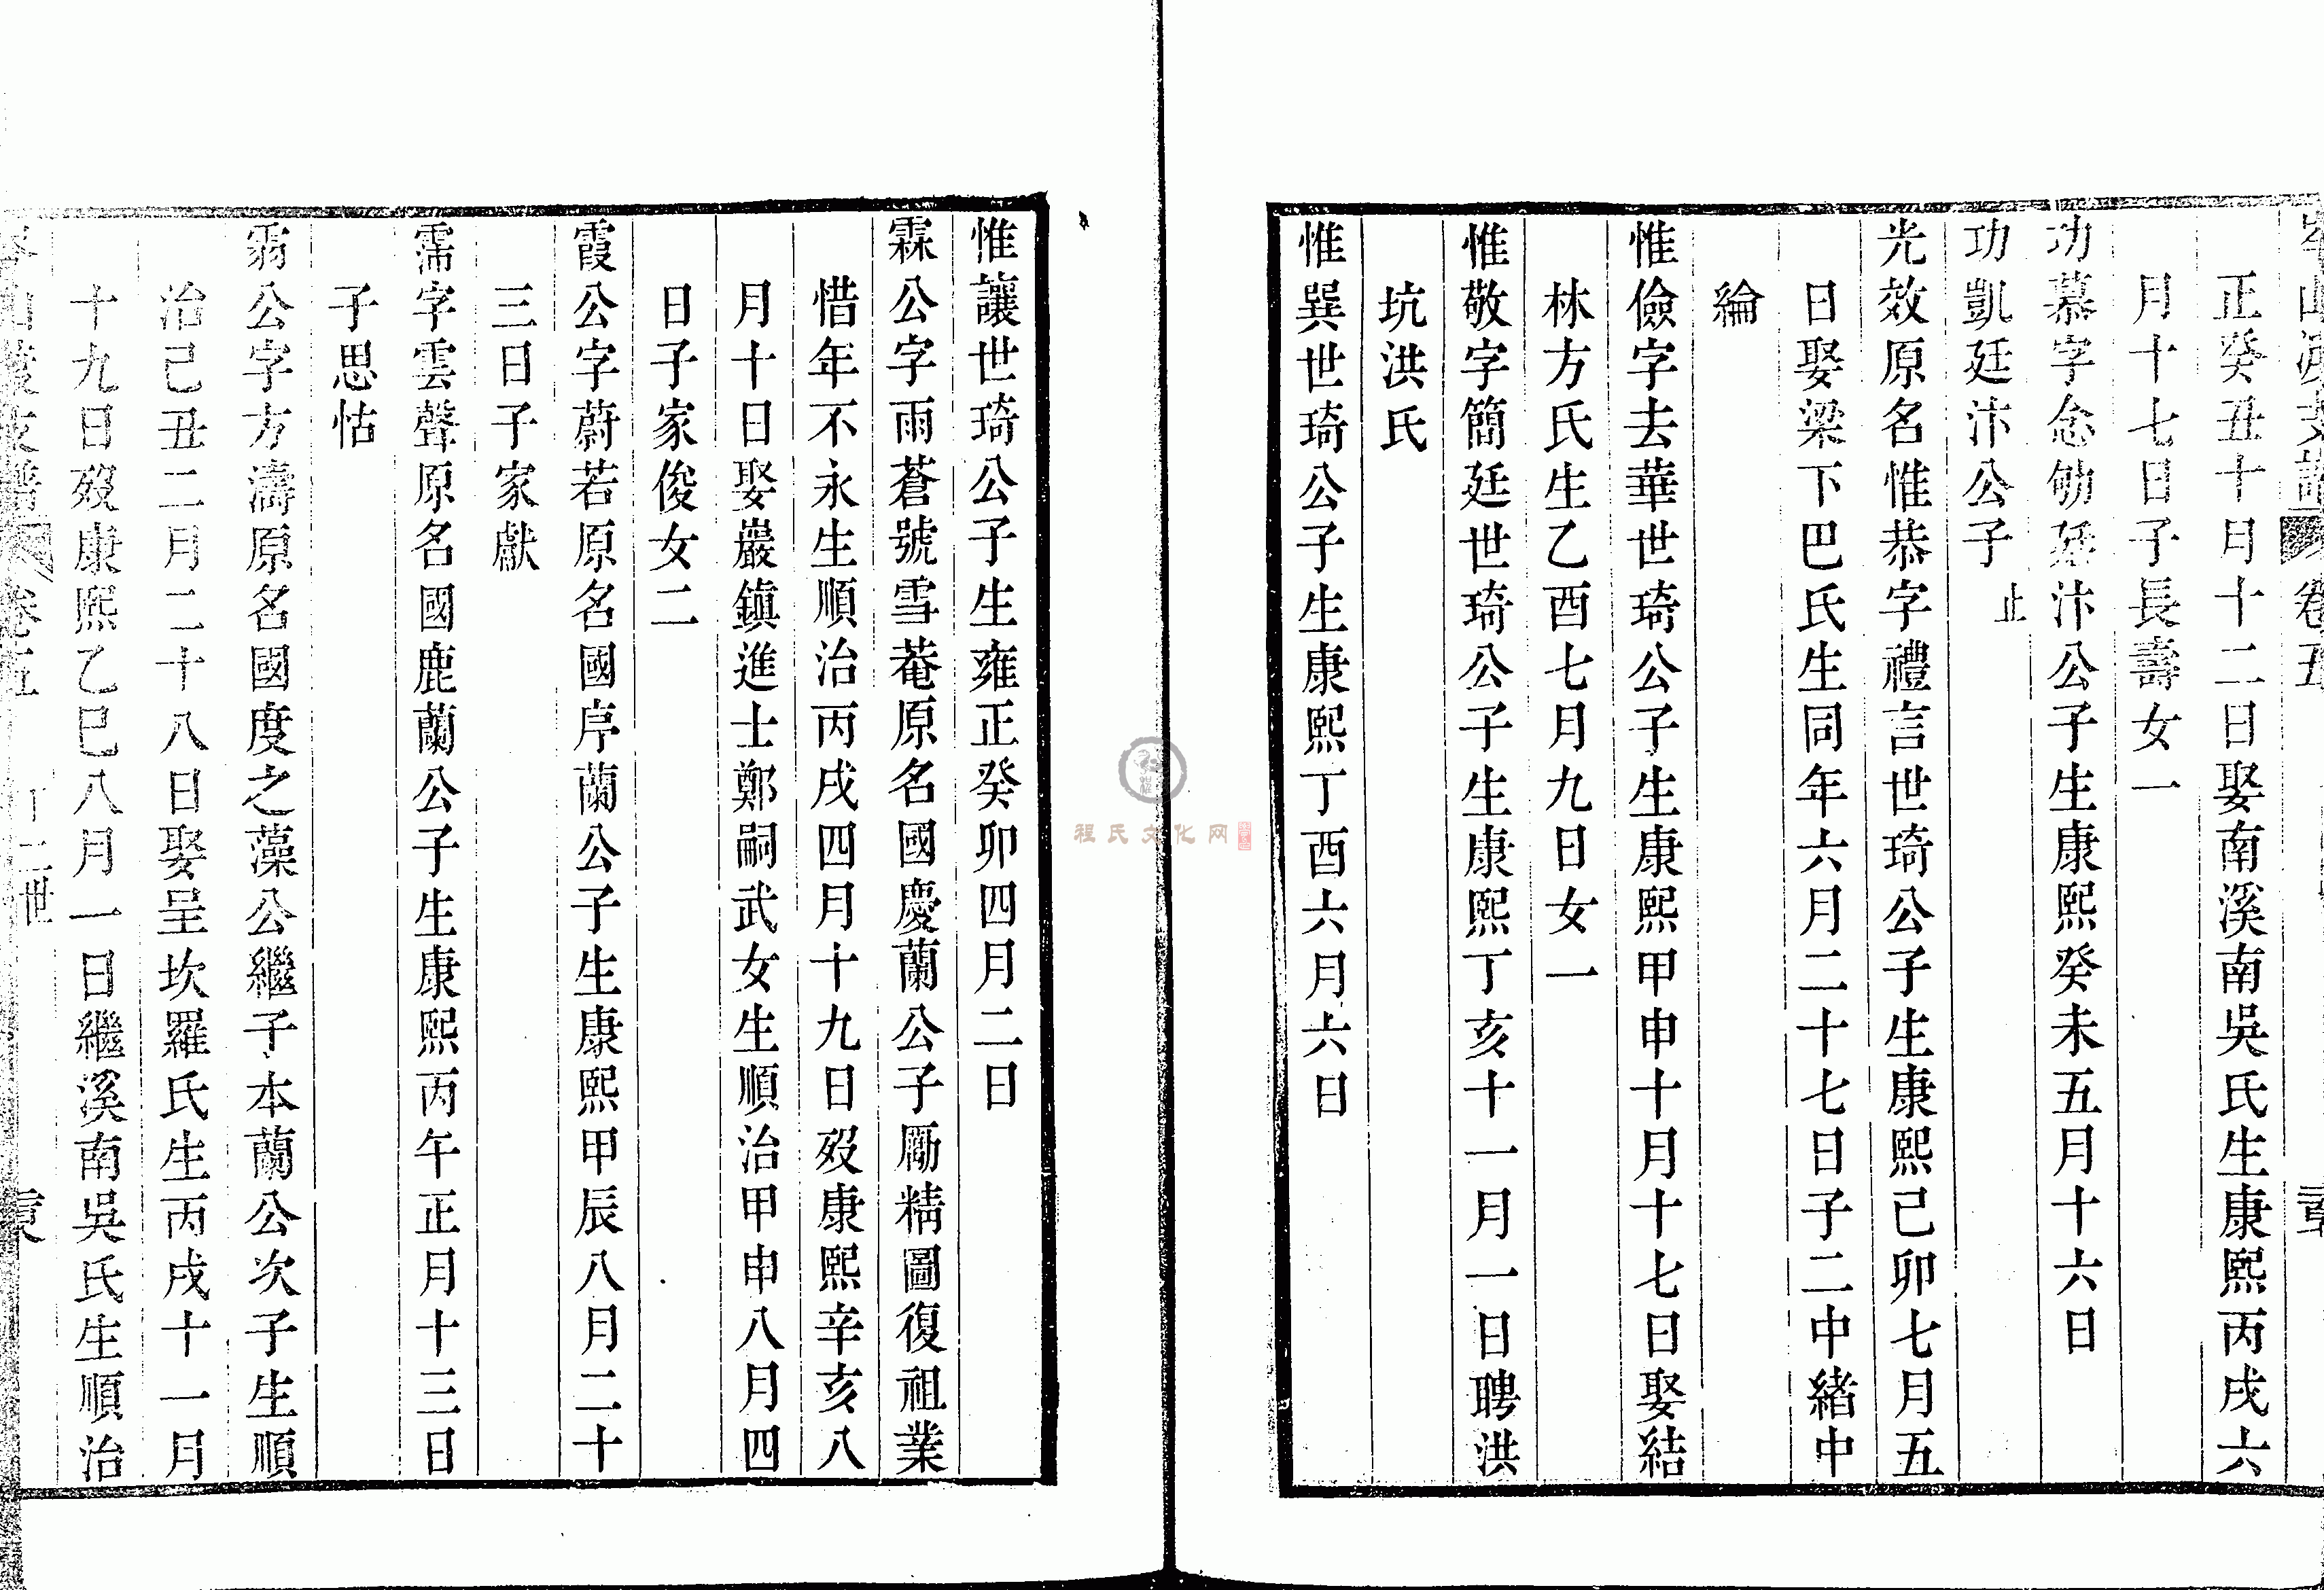 岑山渡支譜 卷五
正癸丑十月十二日娶南溪南吳氏生康熙丙戌六
月十七日子長壽女一
功慕字念劬廷汴公子生康熙癸未五月十六日
功凱廷汴公子 止
光效原名惟恭字禮言世琦公子生康熙己卯七月五
日娶梁下巴氏生同年六月二十七日子二中緒中
綸
惟儉字去華世琦公子生康熙甲申十月十七日娶結
林方氏生乙酉七月九日女一
惟敬字簡廷世琦公子生康熙丁亥十一月一日聘洪
坑洪氏
惟巽世琦公子生康熙丁酉六月六日
惟讓世琦公子生雍正癸卯四月二日
霖公字雨蒼號雪菴原名國慶蘭公子勵精圖復祖業
惜年不永生順治丙戌四月十九日歿康熙辛亥八
月十日娶巖鎮進士鄭嗣武女生順治甲申八月四
日子家俊女二
霞公字蔚若原名國序蘭公子生康熙甲辰八月二十
三日子家獻
霈字雲聲原名國鹿蘭公子生康熙丙午正月十三日
子思怙
公字方濤原名國度之藻公繼子本蘭公次子生順
治己丑二月二十八日娶呈坎羅氏生丙戌十一月
十九日歿康熙乙巳八月一日繼溪南吳氏生順治
岑山渡支譜 卷五 十二世
程氏文化网